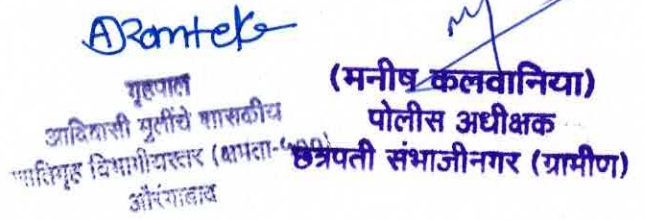 ARamteke
गृहपाल
आदिवासी मुलींचे शासकीय
विभागीयस्तर (क्षमता-५००)
औरंगाबाद
(मनीष कलवानिया)
पोलीस अधीक्षक
छत्रपती संभाजीनगर (ग्रामीण)